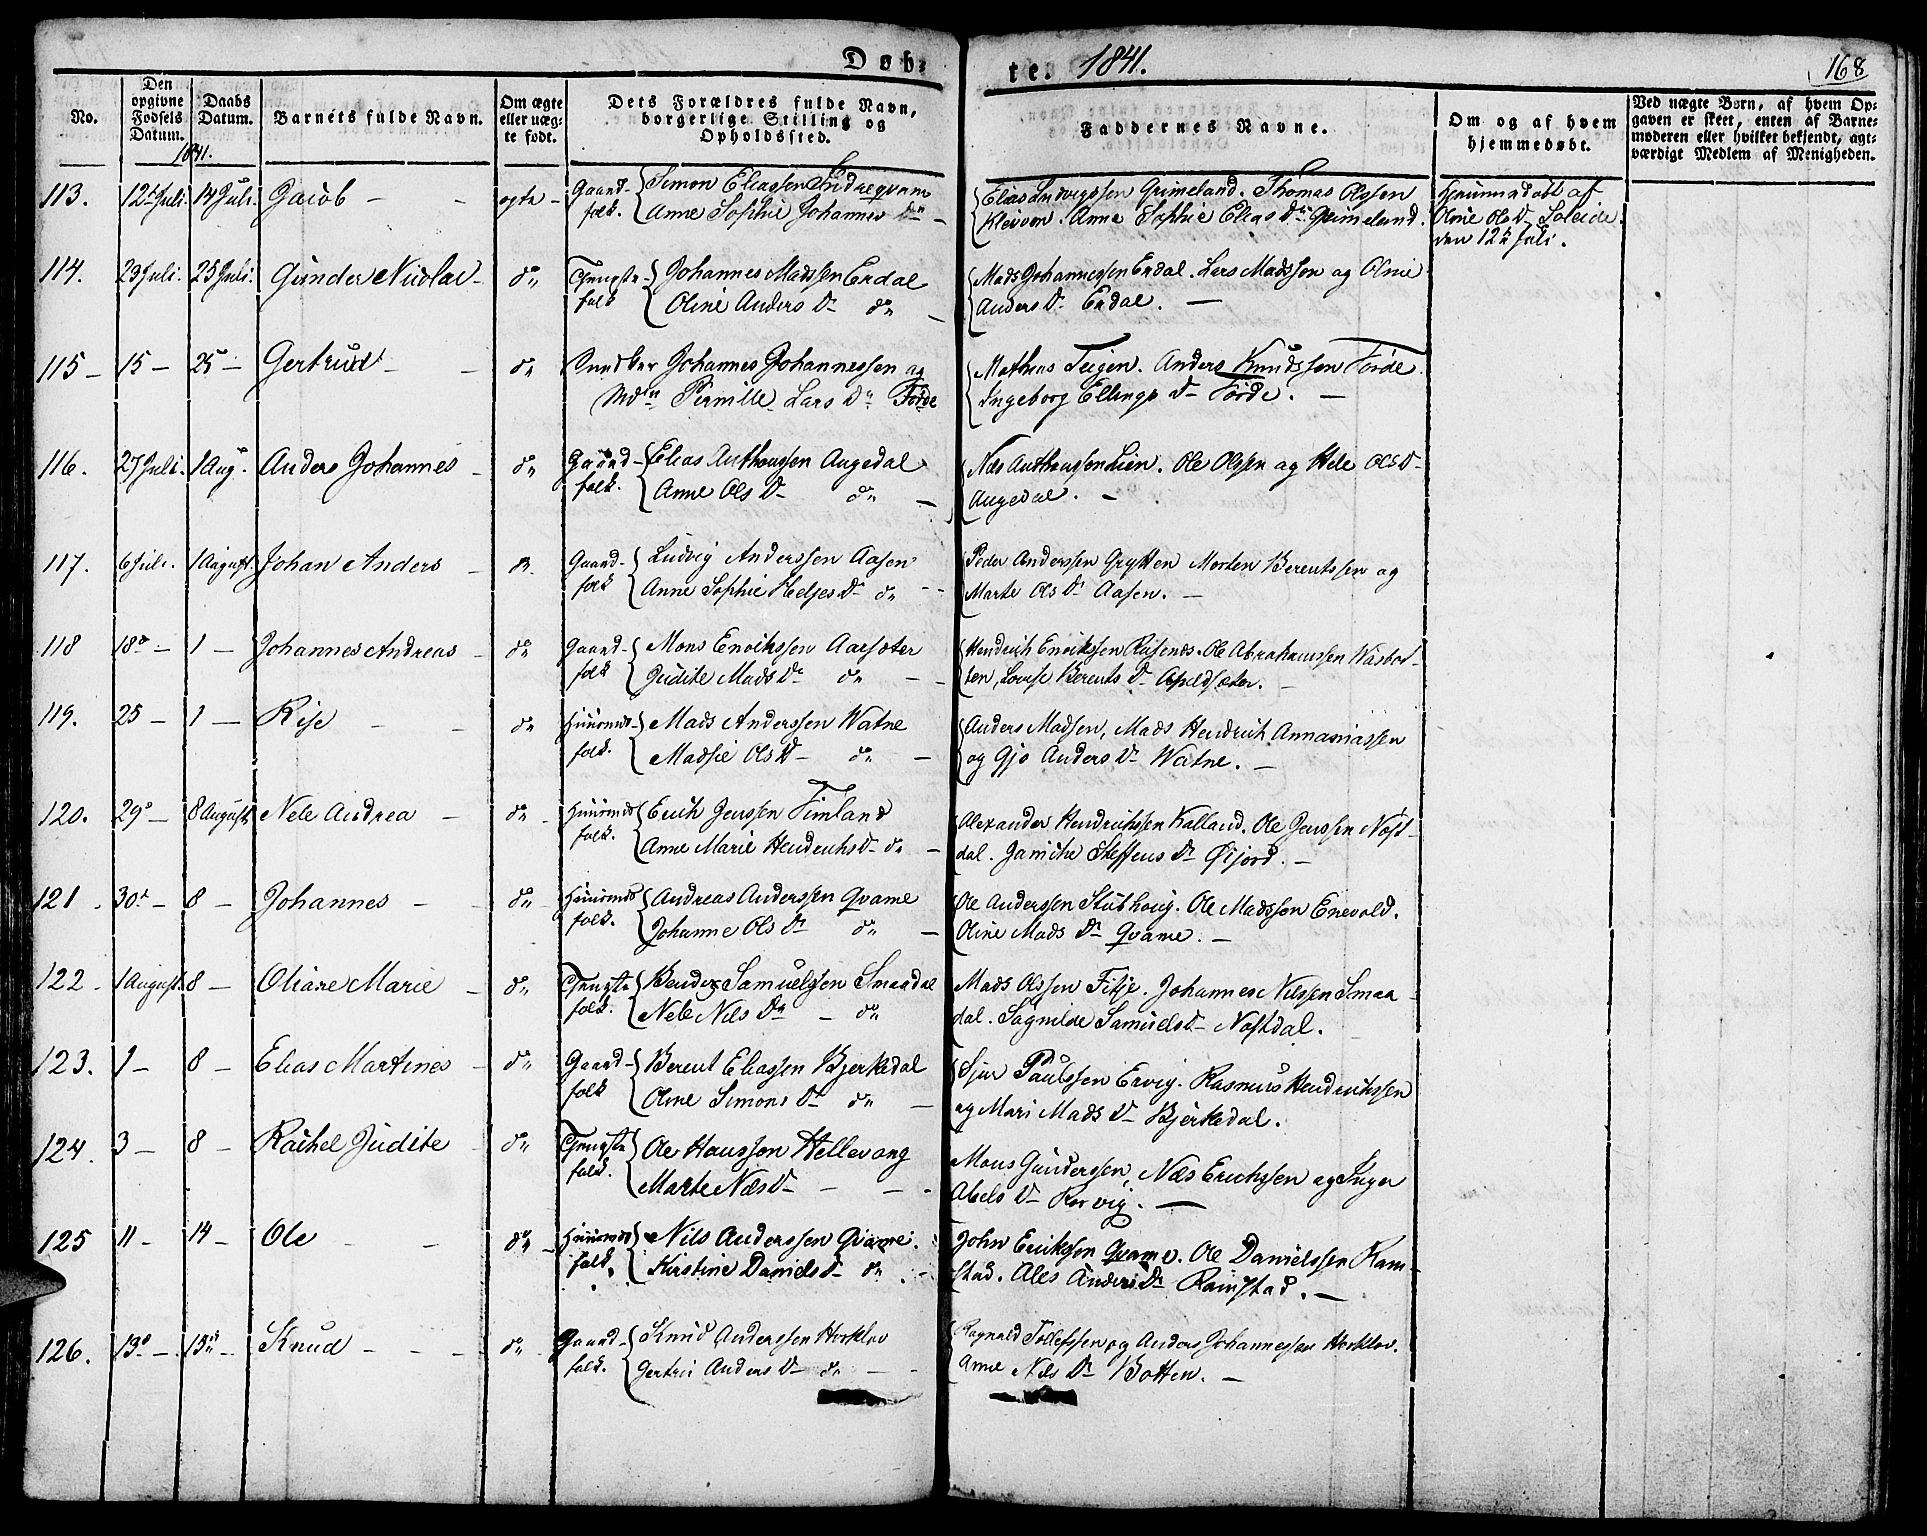 Døb-
te. 1841.
168
No.
Den opgivne Fødsels Datum.
Daabs Datum.
Barnets fulde Navn.
Om ægte eller uægte født.
Dets Forældres fulde Navn, borgerlige Stilling og Opholdssted.
Faddernes Navne.
Om og af hvem hjemmedøbt.
Ved uægte Børn, af hvem Opgaven er skeet, enten af Barnemoderen eller hvilket bekjendt, agtværdigt Medlem af Menigheden.
1841.
113. 12te Juli. 14 Juli. Jacob - - ægte - Gaard- Simon Eliassen Indreqvam
folk. Anne Sophie Johannes Dr
Elias Ludvigssen Grimeland. Thomas Olssen
Kleivon. Anne Sophie Elias Dr Grimeland.
Hjemmedøbt af
Oline Ols D. Soleide
den 12te Juli.
114. 23 Juli. 25 Juli. Gunder Nicolai - do Tjeneste- Johannes Madssen Erdal
folk Oline Anders D- do -
Mads Johannessen Erdal. Lars Madssen og Oline
Anders D- Erdal. -
115 - 15 - 25 - Gertrud - - do Johannes Johannessen og
Pernille Lars Dr Førde
Mathias Teigen. Anders Knudssen Førde.
Ingeborg Ellings D- Førde. -
116. 27 Juli. 1 Aug. Anders Johannes - do Gaard- Elias Anthonssen Angedal
folk. Anne Ols D- do -
Nils Anthonssen Lien. Ole Olssen og Nele Ols D-
Angedal. -
117. 6 Juli. 1 August. Johan Anders - do Gaard- Ludvig Anderssen Aasen
folk Anne Sophie Heljes Dr do -
Peder Anderssen Grytten Morten Berentssen og
Marte Ols Dr Aasen. -
118 18de - 1 - Johannes Andreas - do Gaard- Mons Enoikssen Aarsæter
folk Judite Mads Dr do -
Hendrich Enoikssen Risenæs. Ole Abrahamssen Wasbot-
ten, Lovise Berents Dr Apeldsæter. -
119. 25 - 1 - Rise - - do Huusmands- Mads Anderssen Watne
folk. Madsie Ols D- do -
Anders Madsen, Mads Hendrich Annaniassen
og Gjø Anders Dr Watne. -
120. 29de - 8 August Nele Andrea - do - Huusmands Erich Jenssen Timland
folk. Anne Marie Hendrichs D- do -
Alexander Hendrichssen Kalland. Ole Jenssen Nøst-
dal. Janike Steffens Dr -
121. 30te - 8 - Johannes - - do - Huusmands Andreas Anderssen Qvame
folk. Johanne Ols Dr do -
Ole Anderssen Stubhoug. Ole Madssøn Enevold.
Oline Mads Dr Qvame. -
122 - 1 August. 8 - Oliane Marie - do - Tjeneste Bendix Samuelssen Smaadal
folk. Nele Nils Dr - do
Mads Olssen Fitje. Johannes Nilssen Smaa-
dal. Sagnilde Samuels D- Nøstdal.
123. 1 - 8 - Elias Martines - do - Gaard- Berent Eliassen Bjerkedal
folk Oline Simons Dr do -
Sjur Paulssen Ervig. Rasmus Hendrichssen
og Mari Mads D- Bjerkedal.
124. 3 - 8 - Rachel Judite - do - Tjeneste Ole Hanssøn Hellevang
folk. Marte Nils D- - -
Mons Gunderssen, Nils Erichssen og Inger
Abels D- Korvig. -
125 11 - 14 - Ole - - do - Huusmands Nils Anderssen Qvame.
folk. Kirstine Daniels D- do -
John Erikssen Qvame. Ole Danielssen Ram-
stad. Ales Anders Dr Ramstad. -
126. 13de - 15de - Knud - - - do - Gaard- Knud Anderssen Horklov
folk. Gertrui Anders D- do - -
Ragnald Tollefssen og Anders Johannessen Horklov.
Anne Nils Dr Botten. -